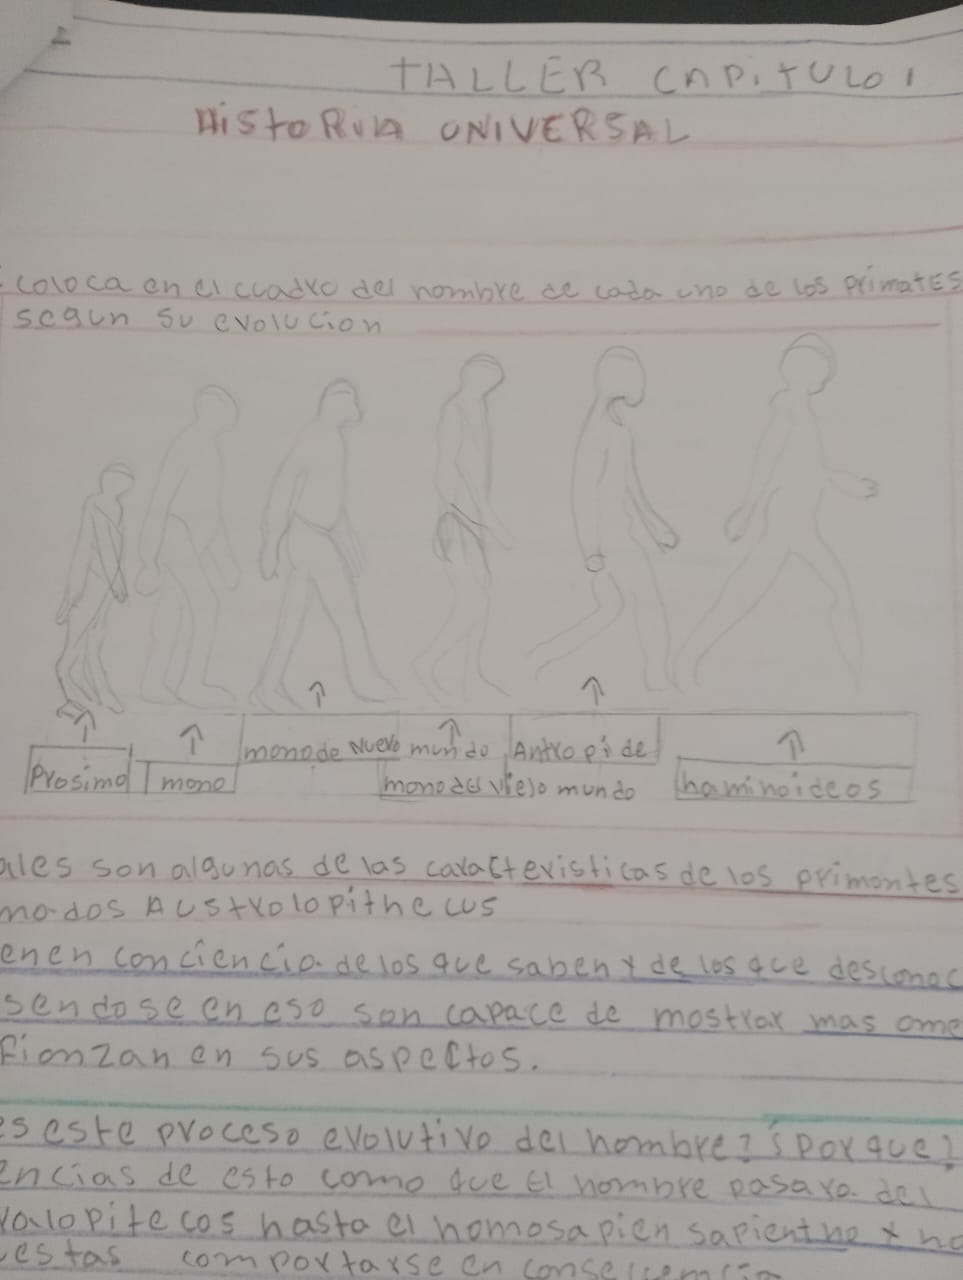 2
TALLER CAPITULO 1
HistoRiA UNIVERSAL
coloca en el cuadro del nombre de cada uno de los primates
segun su evolucion
Prosimo mono mono de Nuevo mundo Antropide
mono del viejo mundo haminoideos
ales son algunas de las caracteristicas de los primontes
mados Austrolopithecus
enen conciencia de los que saben y de los que desconoc
sendose en eso son capace de mostrar mas ome
fionzan en sus aspectos.
es este proceso evolutivo del hombre? ¿por que?
encias de esto como que El hombre pasara del
ralopitecos hasta el homosapien sapienthe y no
estas comportarse en